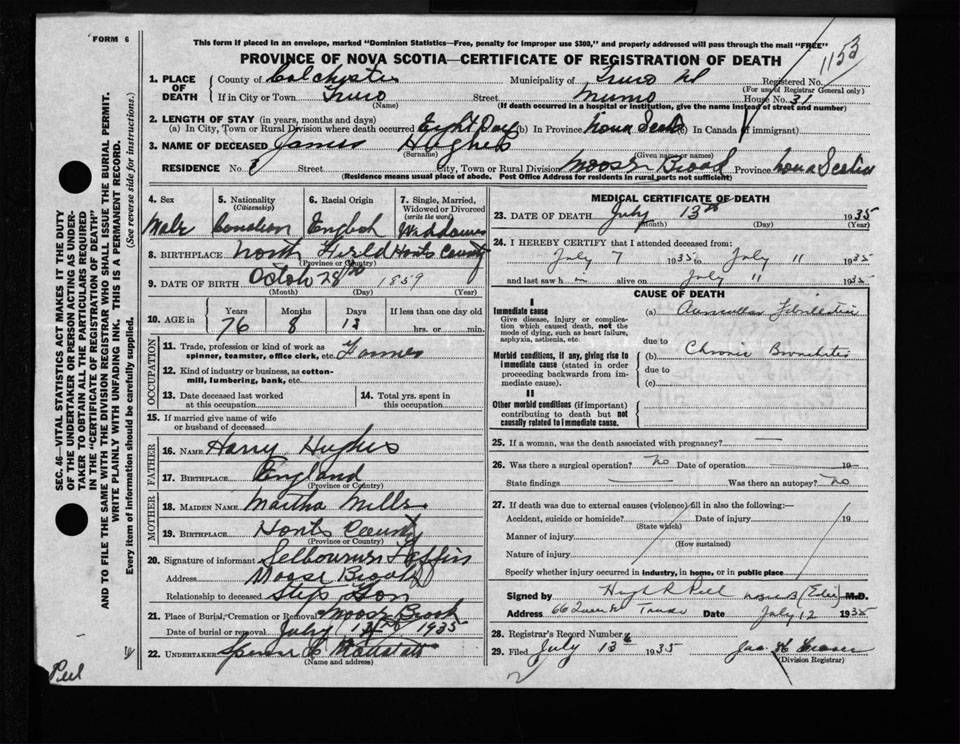 FORM 6
This form if placed in an envelope, marked "Dominion Statistics—Free, penalty for improper use $300," and properly addressed will pass through the mail "FREE"
1153
PROVINCE OF NOVA SCOTIA—CERTIFICATE OF REGISTRATION OF DEATH
1. PLACE OF DEATH
County of Colchester Municipality of Truro Registered No.
(For use of Registrar General only)
If in City or Town Truro Street Munro House No. 31
(Name) (If death occurred in a hospital or institution, give the name instead of street and number)
2. LENGTH OF STAY (in years, months and days)
(a) In City, Town or Rural Division where death occurred Eight Days (b) In Province Nova Scotia (c) In Canada (if immigrant)
3. NAME OF DECEASED James Hughes
(Surname) (Given name or names)
RESIDENCE No. Street City, Town or Rural Division Moose Brook Province Nova Scotia
(Residence means usual place of abode. Post Office Address for residents in rural parts not sufficient)
4. Sex 5. Nationality (Citizenship) 6. Racial Origin 7. Single, Married, Widowed or Divorced (write the word)
Male Canadian English Widdawer
8. BIRTHPLACE North Field Hants County
(Province or Country)
9. DATE OF BIRTH Octob 28th 1859
(Month) (Day) (Year)
10. AGE in Years Months Days If less than one day old
76 8 13 hrs. or min.
OCCUPATION
11. Trade, profession or kind of work as spinner, teamster, office clerk, etc. Farmer
12. Kind of industry or business, as cotton-mill, lumbering, bank, etc.
13. Date deceased last worked at this occupation 14. Total yrs. spent in this occupation
15. If married give name of wife or husband of deceased
FATHER
16. NAME Harry Hughes
17. BIRTHPLACE England
(Province or Country)
MOTHER
18. MAIDEN NAME Martha Mills
19. BIRTHPLACE Hants County
(Province or Country)
20. Signature of informant
Address Moose Brook
Relationship to deceased Step Son
21. Place of Burial, Cremation or Removal Moose Brook
Date of burial or removal July 1935
22. UNDERTAKER
(Name and address)
MEDICAL CERTIFICATE OF DEATH
23. DATE OF DEATH July 13th 1935
(Month) (Day) (Year)
24. I HEREBY CERTIFY that I attended deceased from:
July 7 1935 to July 11 1935
and last saw h m alive on July 11 1935
CAUSE OF DEATH
I
Immediate cause
Give disease, injury or complication which caused death, not the mode of dying, such as heart failure, asphyxia, asthenia, etc.
(a) Auricular Fibrillation
due to
Morbid conditions, if any, giving rise to immediate cause (stated in order proceeding backwards from immediate cause).
(b) Chronic Bronchitis
due to
(c)
II
Other morbid conditions (if important) contributing to death but not causally related to immediate cause.
25. If a woman, was the death associated with pregnancy? —
26. Was there a surgical operation? No Date of operation 19
State findings — Was there an autopsy? No
27. If death was due to external causes (violence) fill in also the following:—
Accident, suicide or homicide? Date of injury 19
(State which)
Manner of injury
(How sustained)
Nature of injury
Specify whether injury occurred in industry, in home, or in public place
Signed by Hugh R Peel M.D.
Address 66 Queen St Truro Date July 12 1935
28. Registrar's Record Number
29. Filed July 13 1935
(Division Registrar)
SEC. 46—VITAL STATISTICS ACT MAKES IT THE DUTY
OF THE UNDERTAKER OR PERSON ACTING AS UNDER-
TAKER TO OBTAIN ALL THE PARTICULARS REQUIRED
IN THE "CERTIFICATE OF REGISTRATION OF DEATH"
AND TO FILE THE SAME WITH THE DIVISION REGISTRAR WHO SHALL ISSUE THE BURIAL PERMIT.
WRITE PLAINLY WITH UNFADING INK. THIS IS A PERMANENT RECORD.
Every item of information should be carefully supplied. (See reverse side for instructions.)
Peel
2